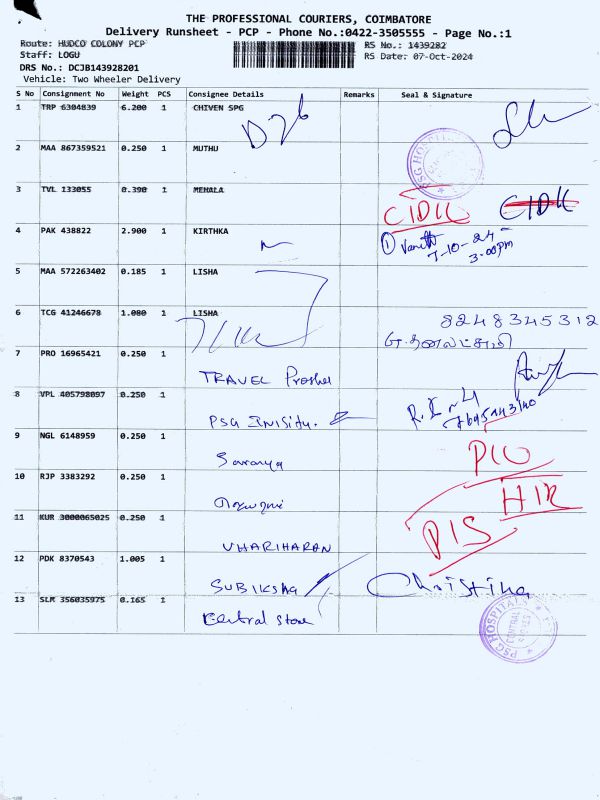 THE PROFESSIONAL COURIERS, COIMBATORE
Delivery Runsheet - PCP - Phone No.:0422-3505555 - Page No.:1
Route: HUDCO COLONY PCP
RS No.: 1439282
Staff: LOGU
RS Date: 07-Oct-2024
DRS No.: DCJB143928201
Vehicle: Two Wheeler Delivery
S No Consignment No Weight PCS Consignee Details Remarks Seal & Signature
1 TRP 6304839 6.200 1 CHIVEN SPG
2 MAA 867359521 0.250 1 MUTHU
PSG HOSPITALS
3 TVL 133055 0.390 1 MEHALA
CIDK CIDK
4 PAK 438822 2.900 1 KIRTHKA
7-10-24
3.00pm
5 MAA 572263402 0.185 1 LISHA
6 TCG 41246678 1.080 1 LISHA
8248345312
7 PRO 16965421 0.250 1
TRAVEL
8 VPL 405798097 0.250 1
PSG
9 NGL 6148959 0.250 1
Saranya
10 RJP 3383292 0.250 1
HIR
11 KUR 3000065025 0.250 1
VHARIHARAN
12 PDK 8370543 1.005 1
SUBIKSHA Christina
13 SLM 356035975 0.165 1
Central Store
PSG HOSPITALS
CENTRAL STORES